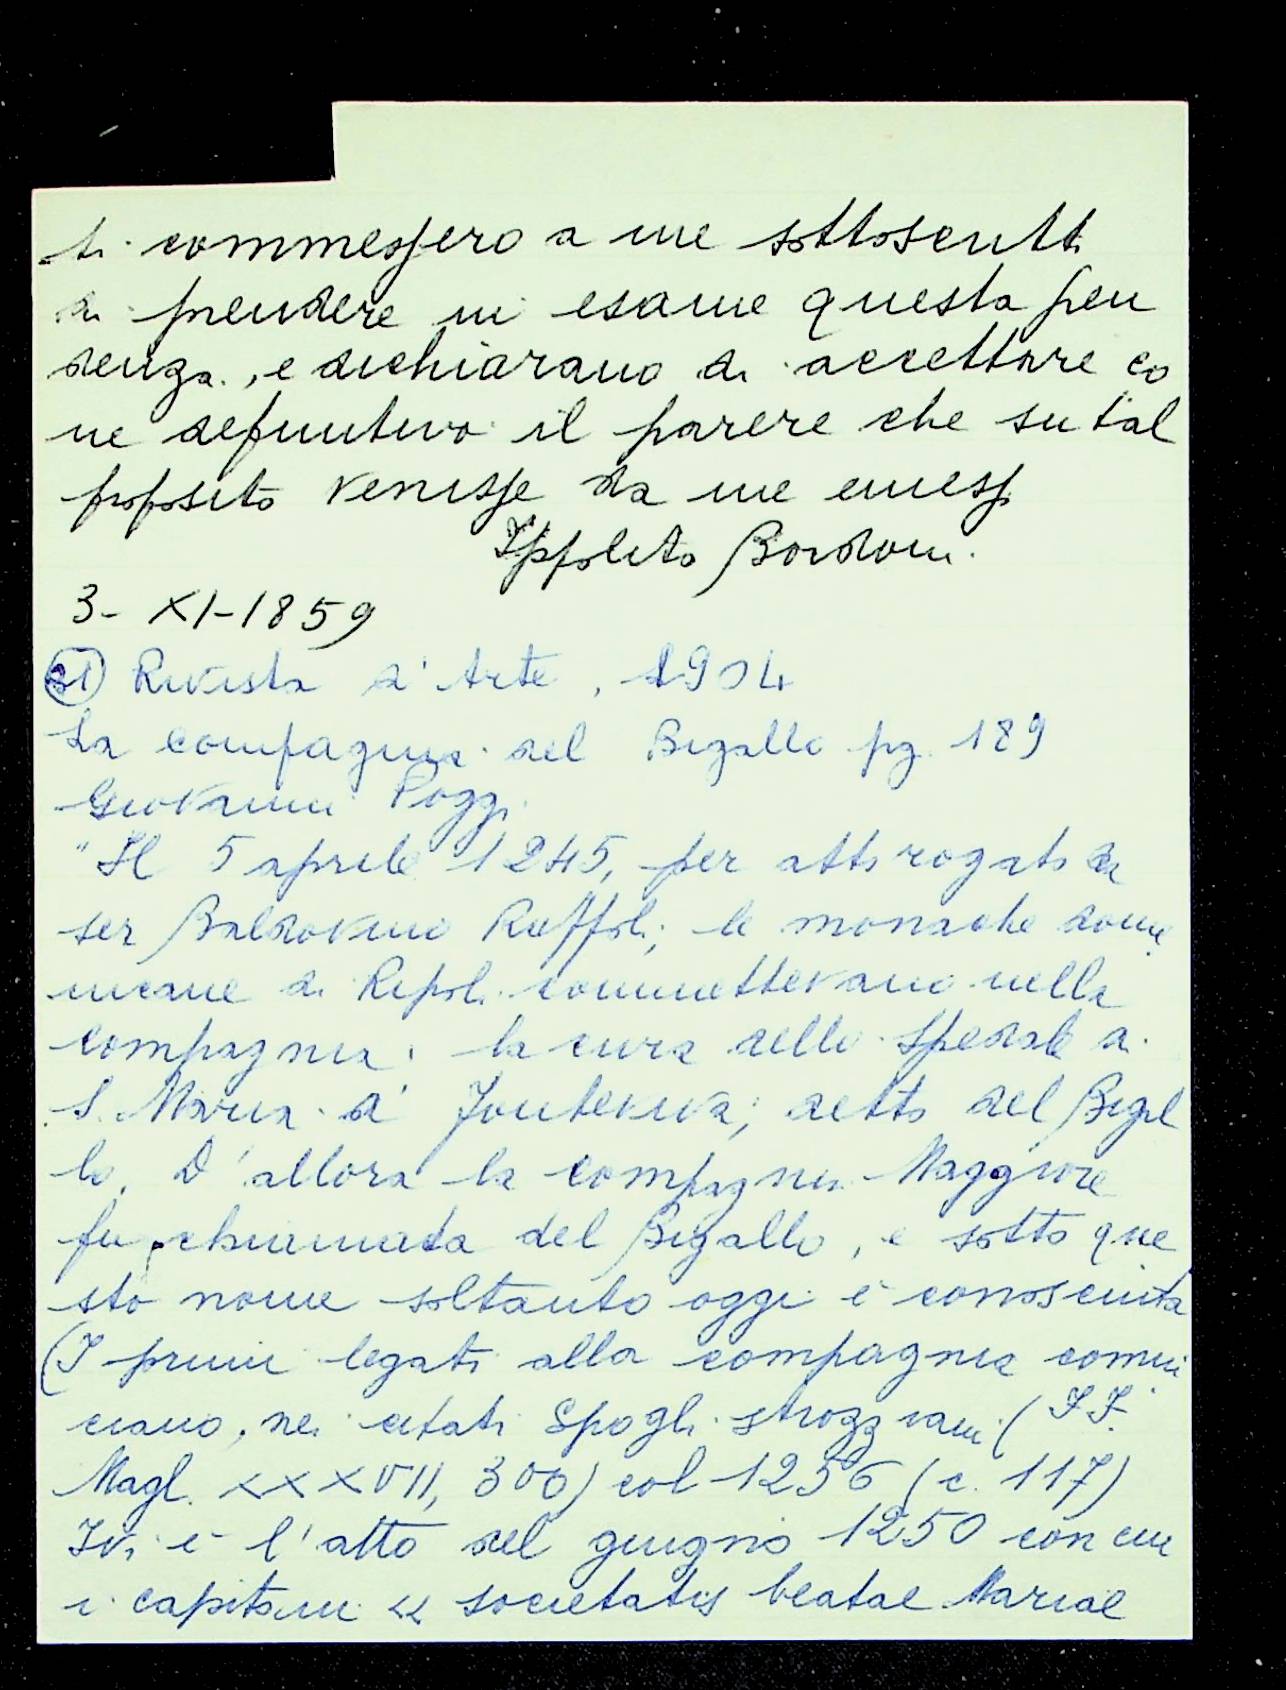 ti commessero a me sottoscritti
di prendere in esame questa pen
denza, e dichiarano di accettare co
me definitivo il parere che su tal
proposito venisse da me emesso
Ippolito Bordoni.
3-XI-1859
21) Rivista d'Arte, 1904
La compagnia del Bigallo pg. 189
Giovanni Poggi
"Il 5 aprile 1245, per atti rogati da
ser Baldovino Ruffoli, le monache dome
nicane di Ripoli commettevano nella
compagnia la cura dello Spedale di
S. Maria d' Fonteviva, detto del Bigal
lo. D'allora la compagnia Maggiore
fu chiamata del Bigallo, e sotto que
sto nome soltanto oggi è conosciuta
(I primi legati alla compagnia comin
ciano, nei citati Spogli strozziani (
Magl. XXXVII, 300) col 1256 (c. 117)
Ivi è l'atto del giugno 1250 con cui
i capitani « societatis beatae Mariae